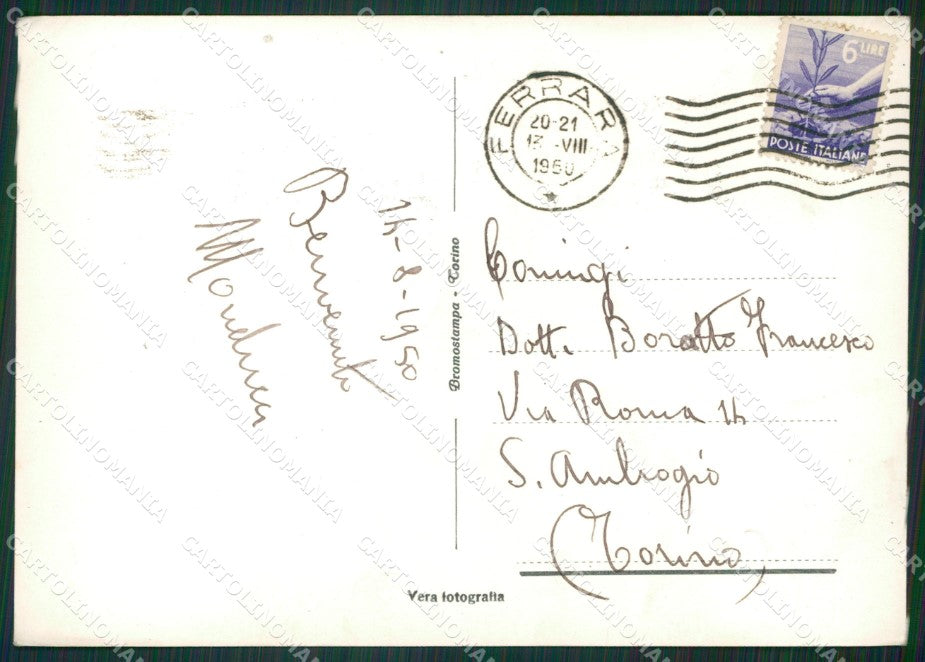 14-8-1950
Benvenuto
Bromostampa - Torino
Vera fotografia
FERRARA
20-21
13 -VIII
1950
6 LIRE
POSTE ITALIANE
Coniugi
Dott. Boratto Francesco
Via Roma 14
S. Ambrogio
(Torino)
CARTOLINOMANIA